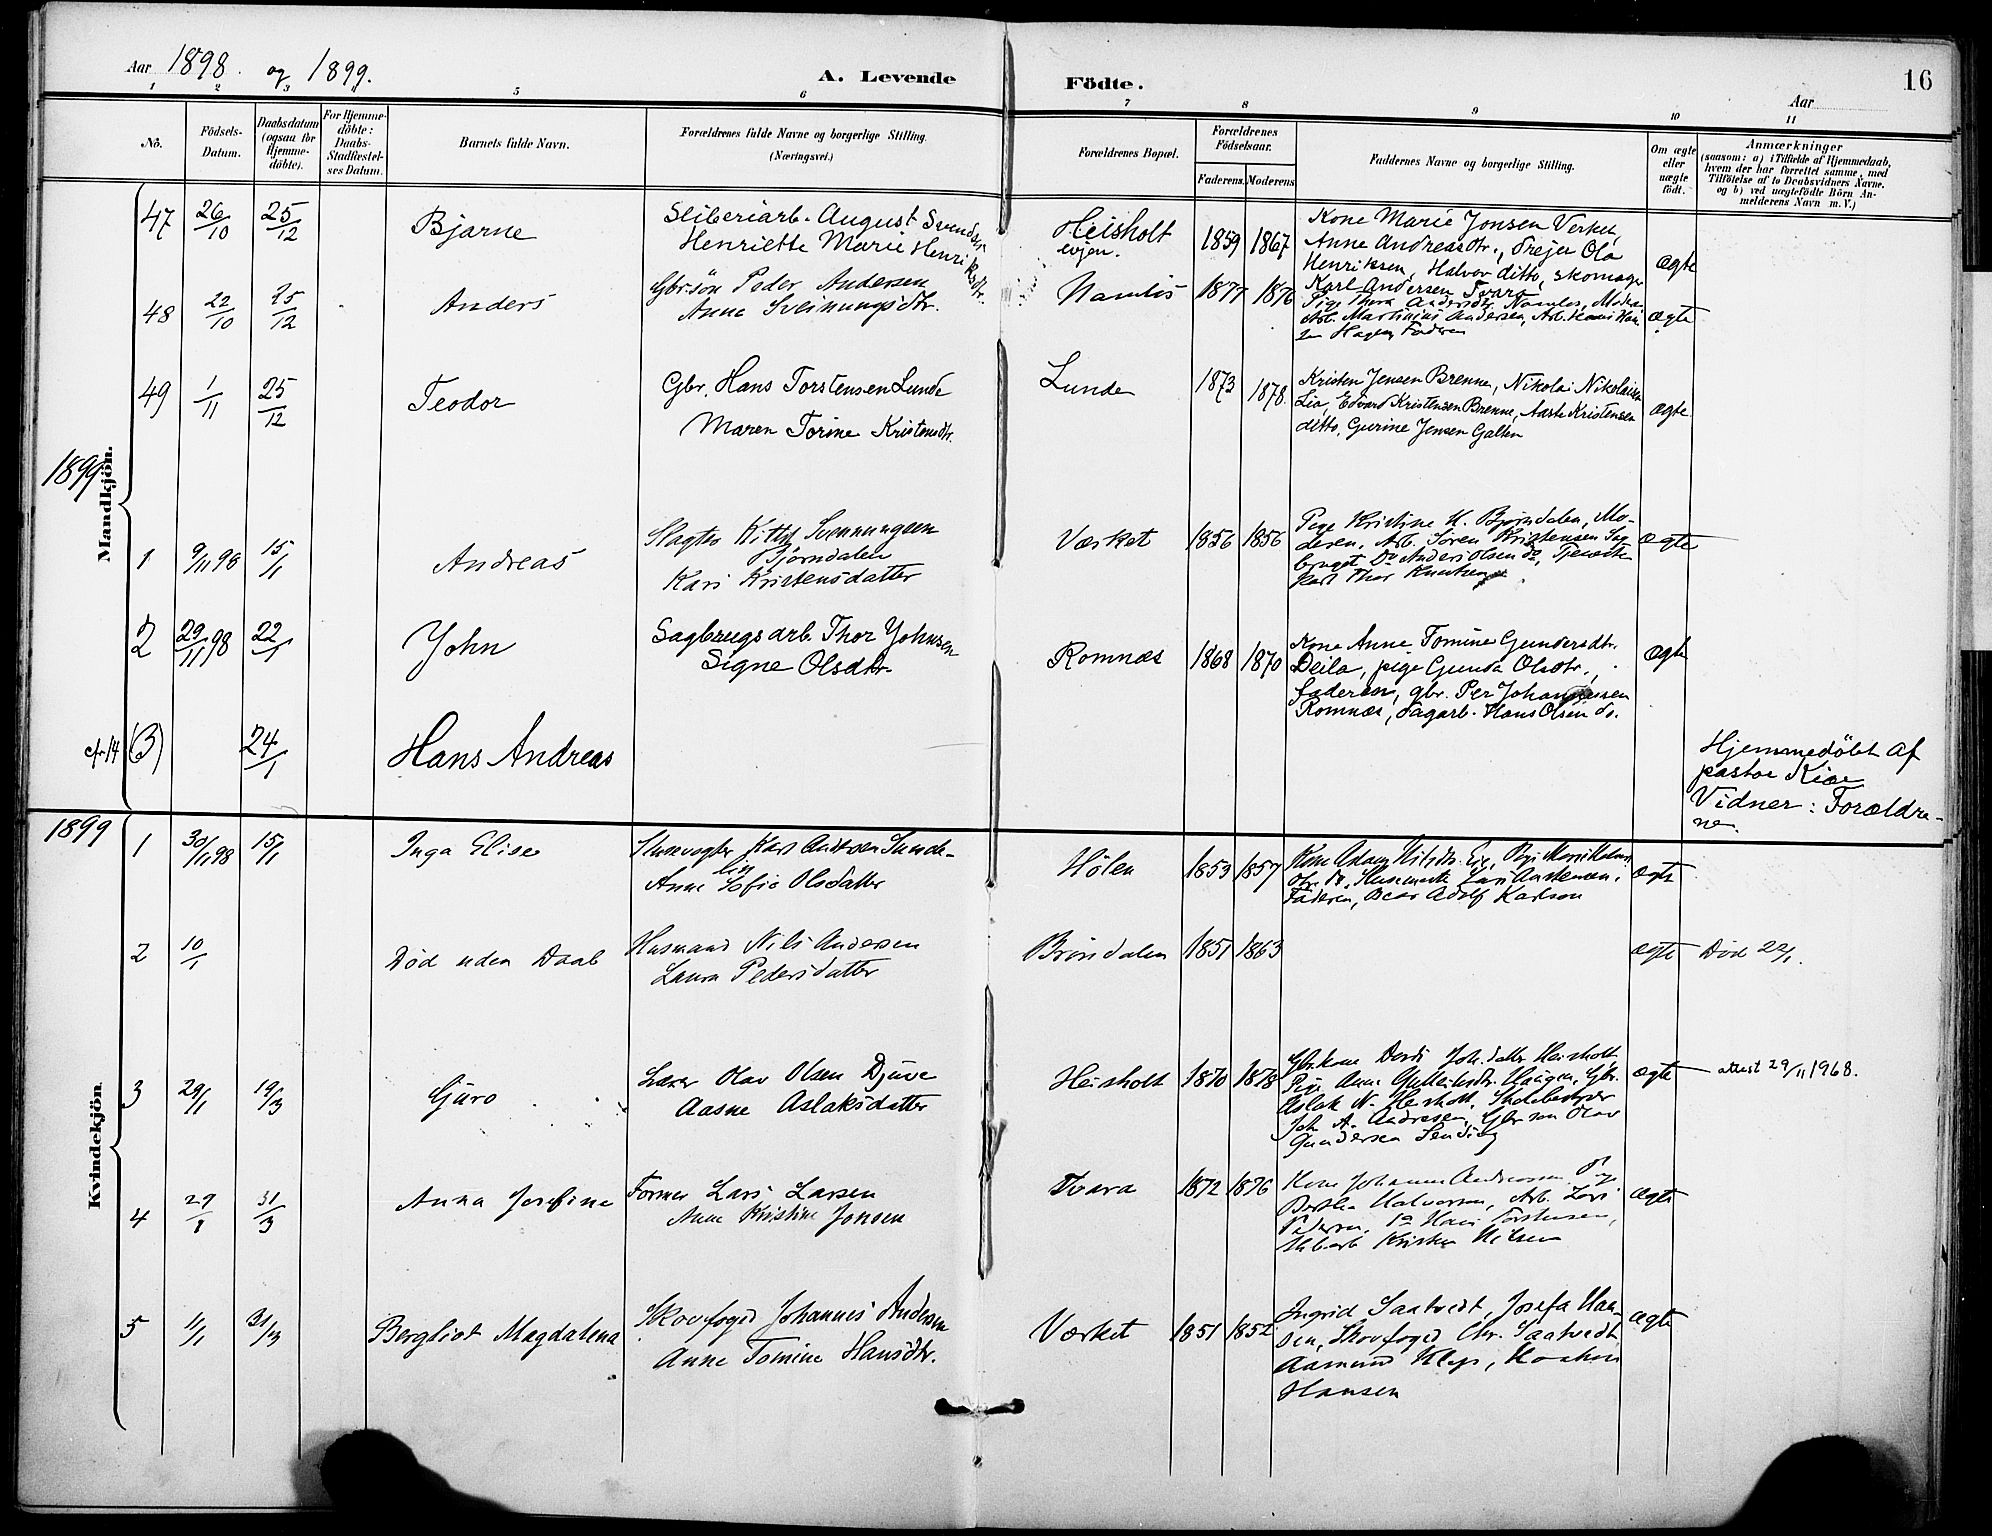 Aar 1898. og 1899.
A. Levende Födte.
Aar
16
1 2 3 5 6 7 8 9 10 11
Nö.
Födsels-Datum.
Daabsdatum (ogsaa for Hjemme-döbte).
For Hjemme-döbte: Daabs-Stadfæstel-ses Datum.
Barnets fulde Navn.
Forældrenes fulde Navne og borgerlige Stilling. (Næringsvei.)
Forældrenes Bopæl.
Forældrenes Födselsaar.
Faderens. Moderens.
Faddernes Navne og borgerlige Stilling.
Om ægte eller uægte födt.
Anmærkninger
(saasom: a) i Tilfælde af Hjemmedaab,
hvem der har forrettet samme, med
Tilföielse af to Daabsvidners Navne.
og b) ved uægtefödte Börn An-
melderens Navn m. V.)
Mandkjön.
47 26/10 25/12 Bjarne
Sliberiarb. August Svendsen
Henriette Marie Henriksdtr.
Heisholt
1859 1867
Kone Marie Jonsen Verket,
Anne Andreasdtr., Ola
Henriksen, Halvor ditto, skomager
Karl Andersen Tvara
ægte
48 22/10 25/12 Anders
Gbrsön Peder Andersen
Anna Sveinungsdtr.
Namlös 1877 1876
Pige Thora Andersdtr. Namlös,
Arb. Martinius Andersen, Arb.
Hagen, Faderen
ægte
49 1/11 25/12 Teodor
Gbr. Hans Torstensen Lunde
Maren Torine Kristensdtr.
Lunde 1873 1878.
Kristen Jensen Brenne, Nikolai Nikolaisen
Lia, Edvard Kristensen Brenne, Aaste Kristensen
ditto, Gurine Jensen Galten
ægte
1899
1 9/11 98 15/1 Andreas
Slagter Kittil Svennungsen
Björndalen
Kari Kristensdatter
Værket 1856 1856
Pige Kristine K. Bjørndalen, Mo-
deren, Arb. Søren Kristensen Sag
bruget Do Anders Olsen do,
Thor Knutsen
ægte
2 29/11 98 22/1 John
Sagbrugsarb. Thor Johnsen
Signe Olsdtr.
Romnæs 1868 1870
Kone Anne Tomine Gundersdtr.
Deila, pige Gunda Olsdtr.,
faderen, gbr. Per Johannessen
Romnæs, Sagarb. Hans Olsen do.
ægte
cfr 14 (3) 24/1 Hans Andreas
Hjemmedöbt af
pastor Kiær
Vidner: Forældre-
ne.
1899
Kvindekjön
1 30/11 98 15/1 Inga Elise
Slusevogter Karl Andersen Sunde-
lin
Anne Sofie Olsdatter
Hölen 1853 1857
Kone
Faderen, Oscar Adolf Karlson
ægte
2 10/1 Död uden Daab
Husmand Nils Andersen
Laura Pedersdatter
Bröndalen 1851 1863
ægte Död 22/1.
3 29/1 19/3 Guro
Lærer Olav Olsen Djuve
Aasne Aslaksdatter
Heisholt 1870 1878
Gbr.kone Dordi Joh.datter Heisholt
Pige Anne Haugen, Gbr.
Aslak N. Heisholt, Skolebestyrer
Joh. A. Andresen, Gbrsøn Olav
Gundersen
ægte attest 29/11 1968.
4 29/1 31/3 Anna Josefine
Former Lars Larsen
Anne Kristine Jonsen
Tvara 1872 1876
Kone Johanne Andreassen, Pige
Bertha Halvorsen, Arb. Lars
Pedersen, do Hans Torstensen,
Kristen Nilsen
ægte
5 11/1 31/3 Bergliot Magdalena
Skovfoged Johannes Andersen
Anne Tomine Hansdtr.
Værket 1851 1852
Ingrid Saatvedt, Josefa Han-
sen, Skovfoged Chr. Saatvedt
Aamund Klep, Haakon
Hansen
ægte